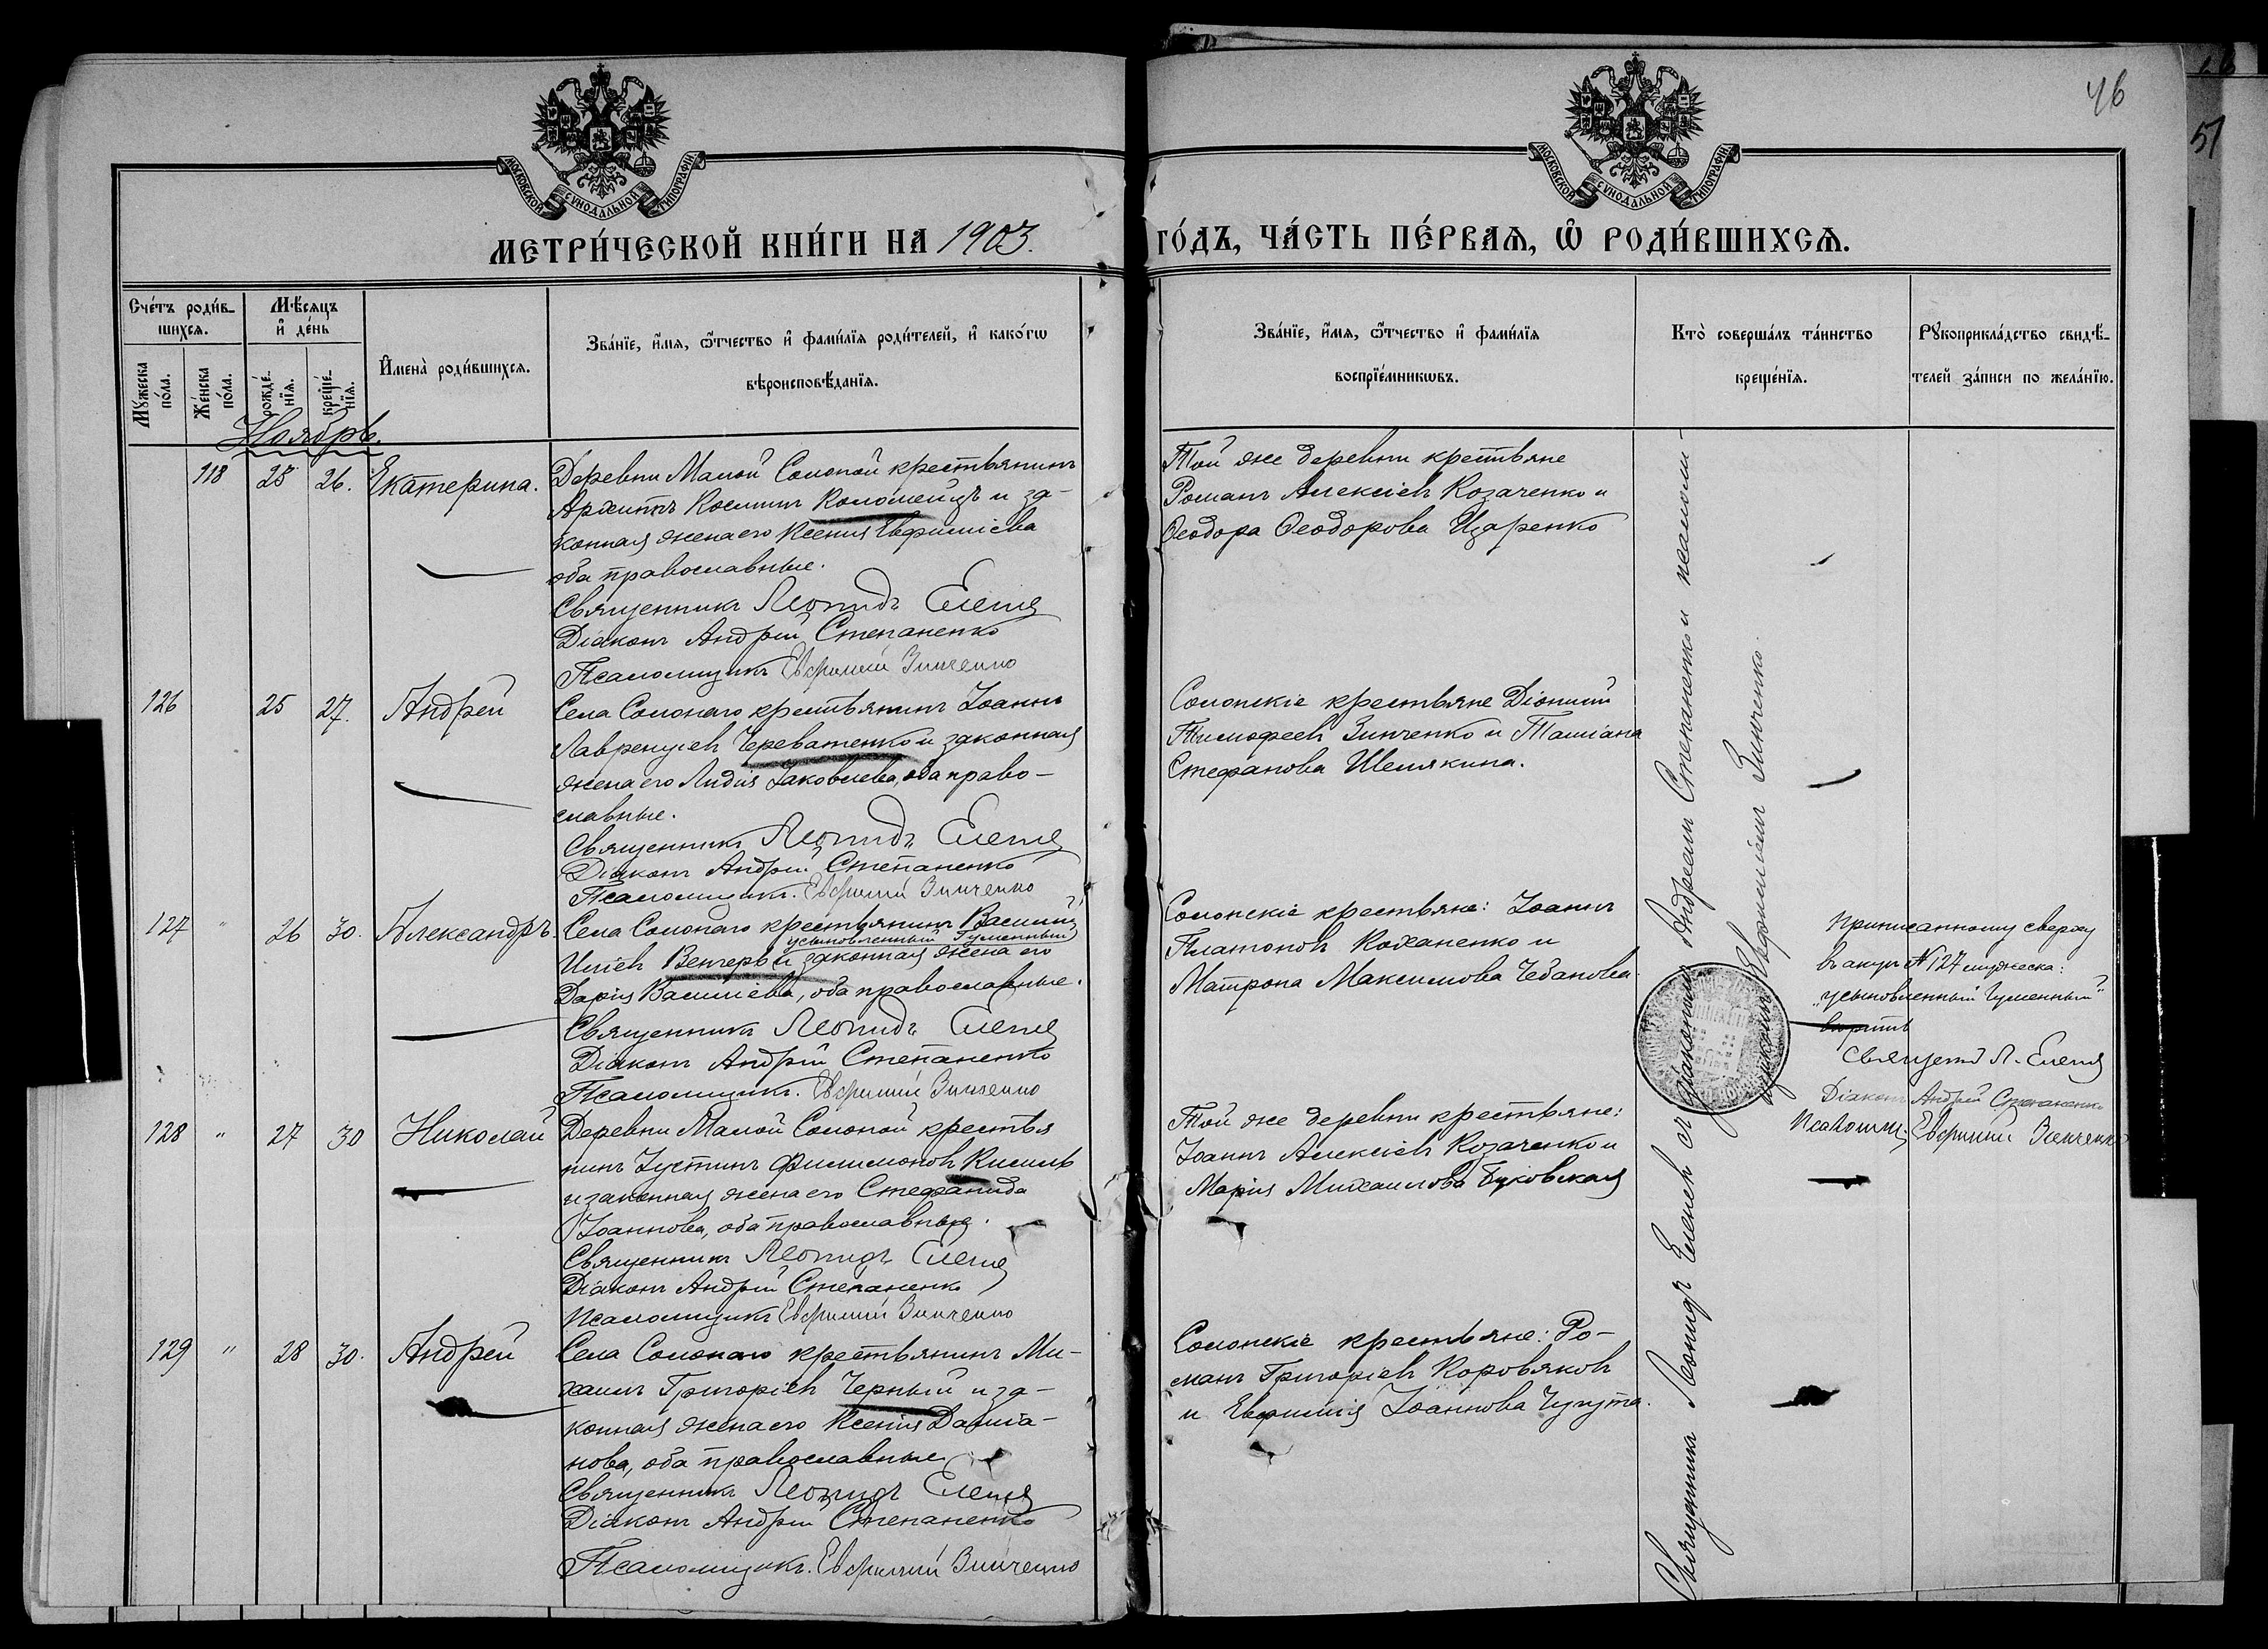 46
51
МОСКОВСКОЙ СѴНОДАЛЬНОЙ ТИПОГРАФІИ
МОСКОВСКОЙ СѴНОДАЛЬНОЙ ТИПОГРАФІИ
МЕТРИ́ЧЕСКОЙ КНИ́ГИ НА 1903.
ГО́ДЪ, ЧА́СТЬ ПЕ́РВАѦ, Ѡ҆ РОДИ́ВШИХСѦ.
Сче́тъ роди́в-
шихсѧ.
Мꙋжеска по́ла.
Же́нска по́ла.
Мѣ́сѧцъ
и҆ де́нь
рожде́-
нїѧ.
креще́-
нїѧ.
И҆мена̀ роди́вшихсѧ.
Зва́нїе, и҆́мѧ, ѻ҆́тчество и҆ фами́лїѧ роди́телей, и҆ како́гѡ
вѣроисповѣ́данїѧ.
Зва́нїе, и҆́мѧ, ѻ҆́тчество и҆ фами́лїѧ
воспрїе́мникѡвъ.
Кто̀ соверша́лъ та́инство
креще́нїѧ.
Рꙋкоприкла́дство свидѣ́-
телей за́писи по жела́нїю.
Ноябрь.
118 25 26. Екатерина.
Деревни Малой Солоной крестьянинъ
Архиппъ Косминъ Коломеицъ и за-
конная жена его Ксенія Евфиміева
оба православные.
Священникъ Леонидъ Еленев
Діаконъ Андрей Степаненко
Псаломщикъ Евфимій Зинченко
Той же деревни крестьяне
Романъ Алексіевъ Козаченко и
Ѳеодора Ѳеодорова Цзаренко
126 25 27. Андрей
Села Солонаго крестьянинъ Іоаннъ
Лаврентіевъ Череватенко и законная
жена его Лидія Іаковлева, оба право-
славные.
Священникъ Леонидъ Еленев
Діаконъ Андрей Степаненко
Псаломщикъ. Евфимій Зинченко
Солонскіе крестьяне Діонисій
Тимофеевъ Зинченко и Татіана
Стефанова Шелякина.
127 " 26 30. Александръ.
Села Солонаго крестьянинъ Василій
усыновленный Гуменный
Иліевъ Венгеръ и законная жена его
Дарія Василіева, оба православные.
Священникъ Леонидъ Еленев
Діаконъ Андрей Степаненко
Псаломщикъ. Евфимій Зинченко
Солонскіе крестьяне: Іоаннъ
Платоновъ Коханенко и
Матрона Максимова Чебанова.
Приписанному сверху
въ актѣ № 127 мужеска:
"усыновленный Гуменный"
вѣрить
Священ. Л. Еленев
Діаконъ Андрей Степаненко
Псаломщ. Евфимій Зинченко
128 " 27 30 Николай
Деревни Малой Солоной крестья
нинъ Іустинъ Филимоновъ Кисиль
и законная жена его Стефанида
Іоаннова, оба православные.
Священникъ Леонидъ Еленев
Діаконъ Андрей Степаненко
Псаломщикъ Евфимій Зинченко
Той же деревни крестьяне:
Іоаннъ Алексіевъ Козаченко и
Марія Михаилова Буковская
129 " 28 30. Андрей
Села Солонаго крестьянинъ Ми-
хаилъ Григоріевъ Черный и за-
конная жена его Ксенія Даміа-
нова, оба православные
Священникъ Леонидъ Еленев
Діаконъ Андрей Степаненко
Псаломщикъ. Евфимій Зинченко
Солонскіе крестьяне: Ро-
манъ Григоріевъ Коровяковъ
и Евфимія Іоаннова Чугута.
Священникъ Леонидъ Еленевъ съ діакономъ Андреемъ Степаненко и псаломщ-
щикомъ Евфиміемъ Зинченко.